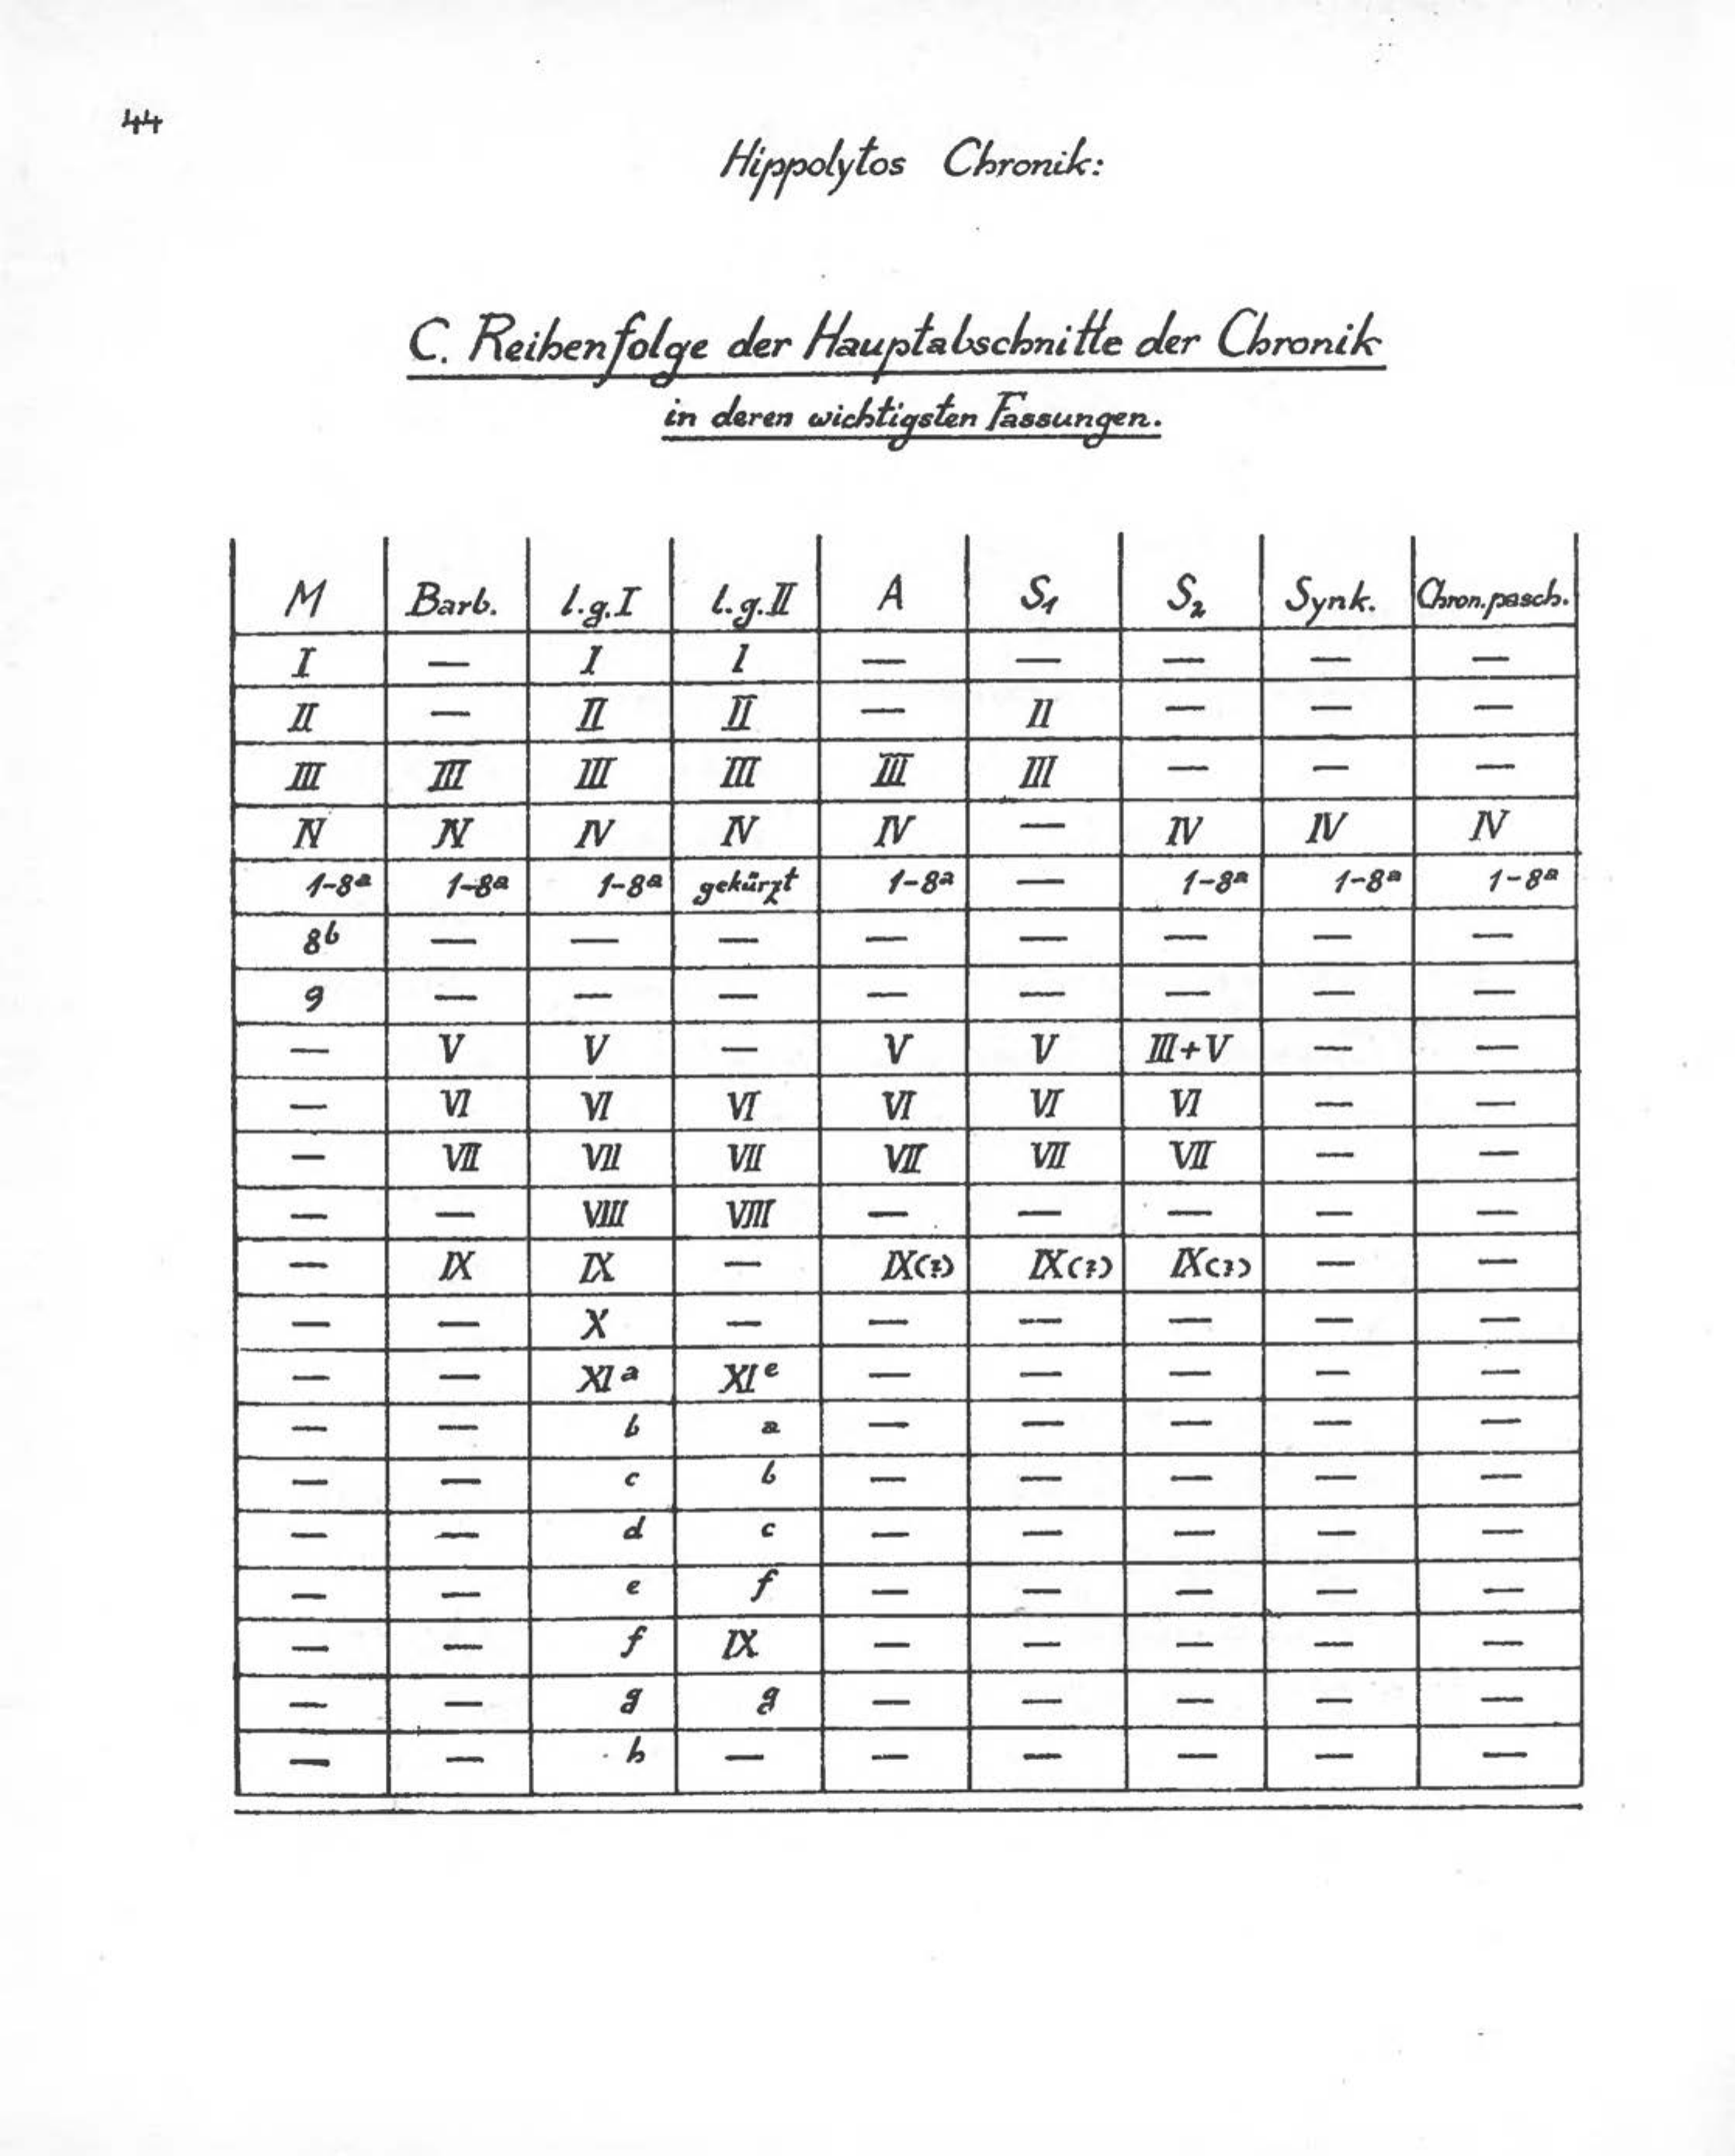 44
Hippolytos Chronik:
C. Reihenfolge der Hauptabschnitte der Chronik
in deren wichtigsten Fassungen.
M Barb. l.g.I l.g.II A S₁ S₂ Synk. Chron.pasch.
I — I I — — — — —
II — II II — II — — —
III III III III III III — — —
IV IV IV IV IV — IV IV IV
1-8ª 1-8ª 1-8ª gekürzt 1-8ª — 1-8ª 1-8ª 1-8ª
8ᵇ — — — — — — — —
9 — — — — — — — —
— V V — V V III+V — —
— VI VI VI VI VI VI — —
— VII VII VII VII VII VII — —
— — VIII VIII — — — — —
— IX IX — IX(?) IX(?) IX(?) — —
— — X — — — — — —
— — XI ᵃ XI ᵉ — — — — —
— — b a — — — — —
— — c b — — — — —
— — d c — — — — —
— — e f — — — — —
— — f IX — — — — —
— — g g — — — — —
— — h — — — — — —